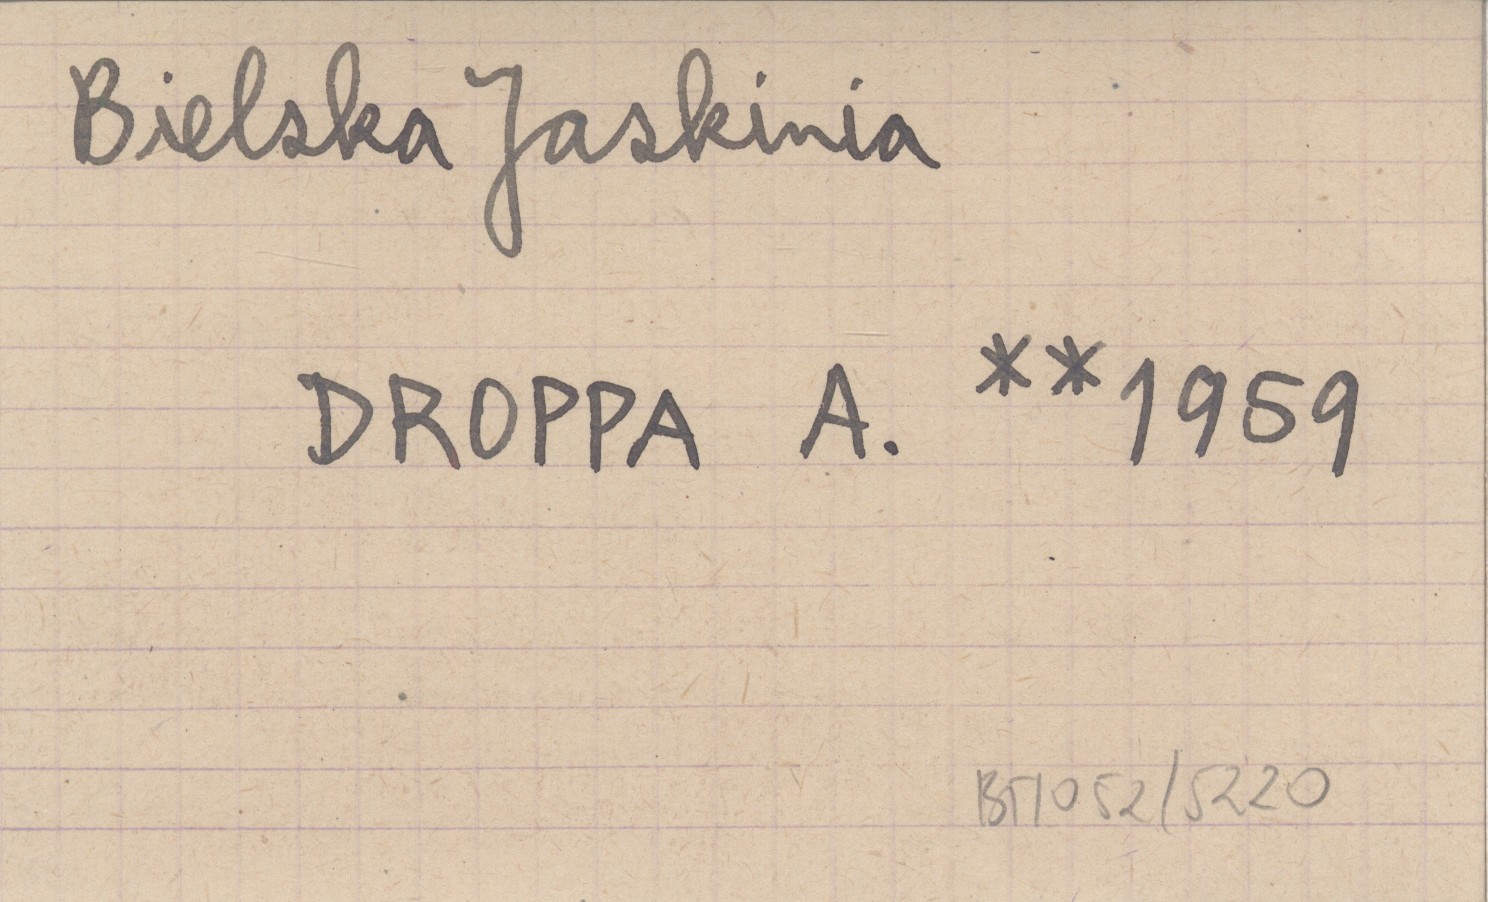 Bielska Jaskinia
DROPPA A. **1959
BT1052/5220